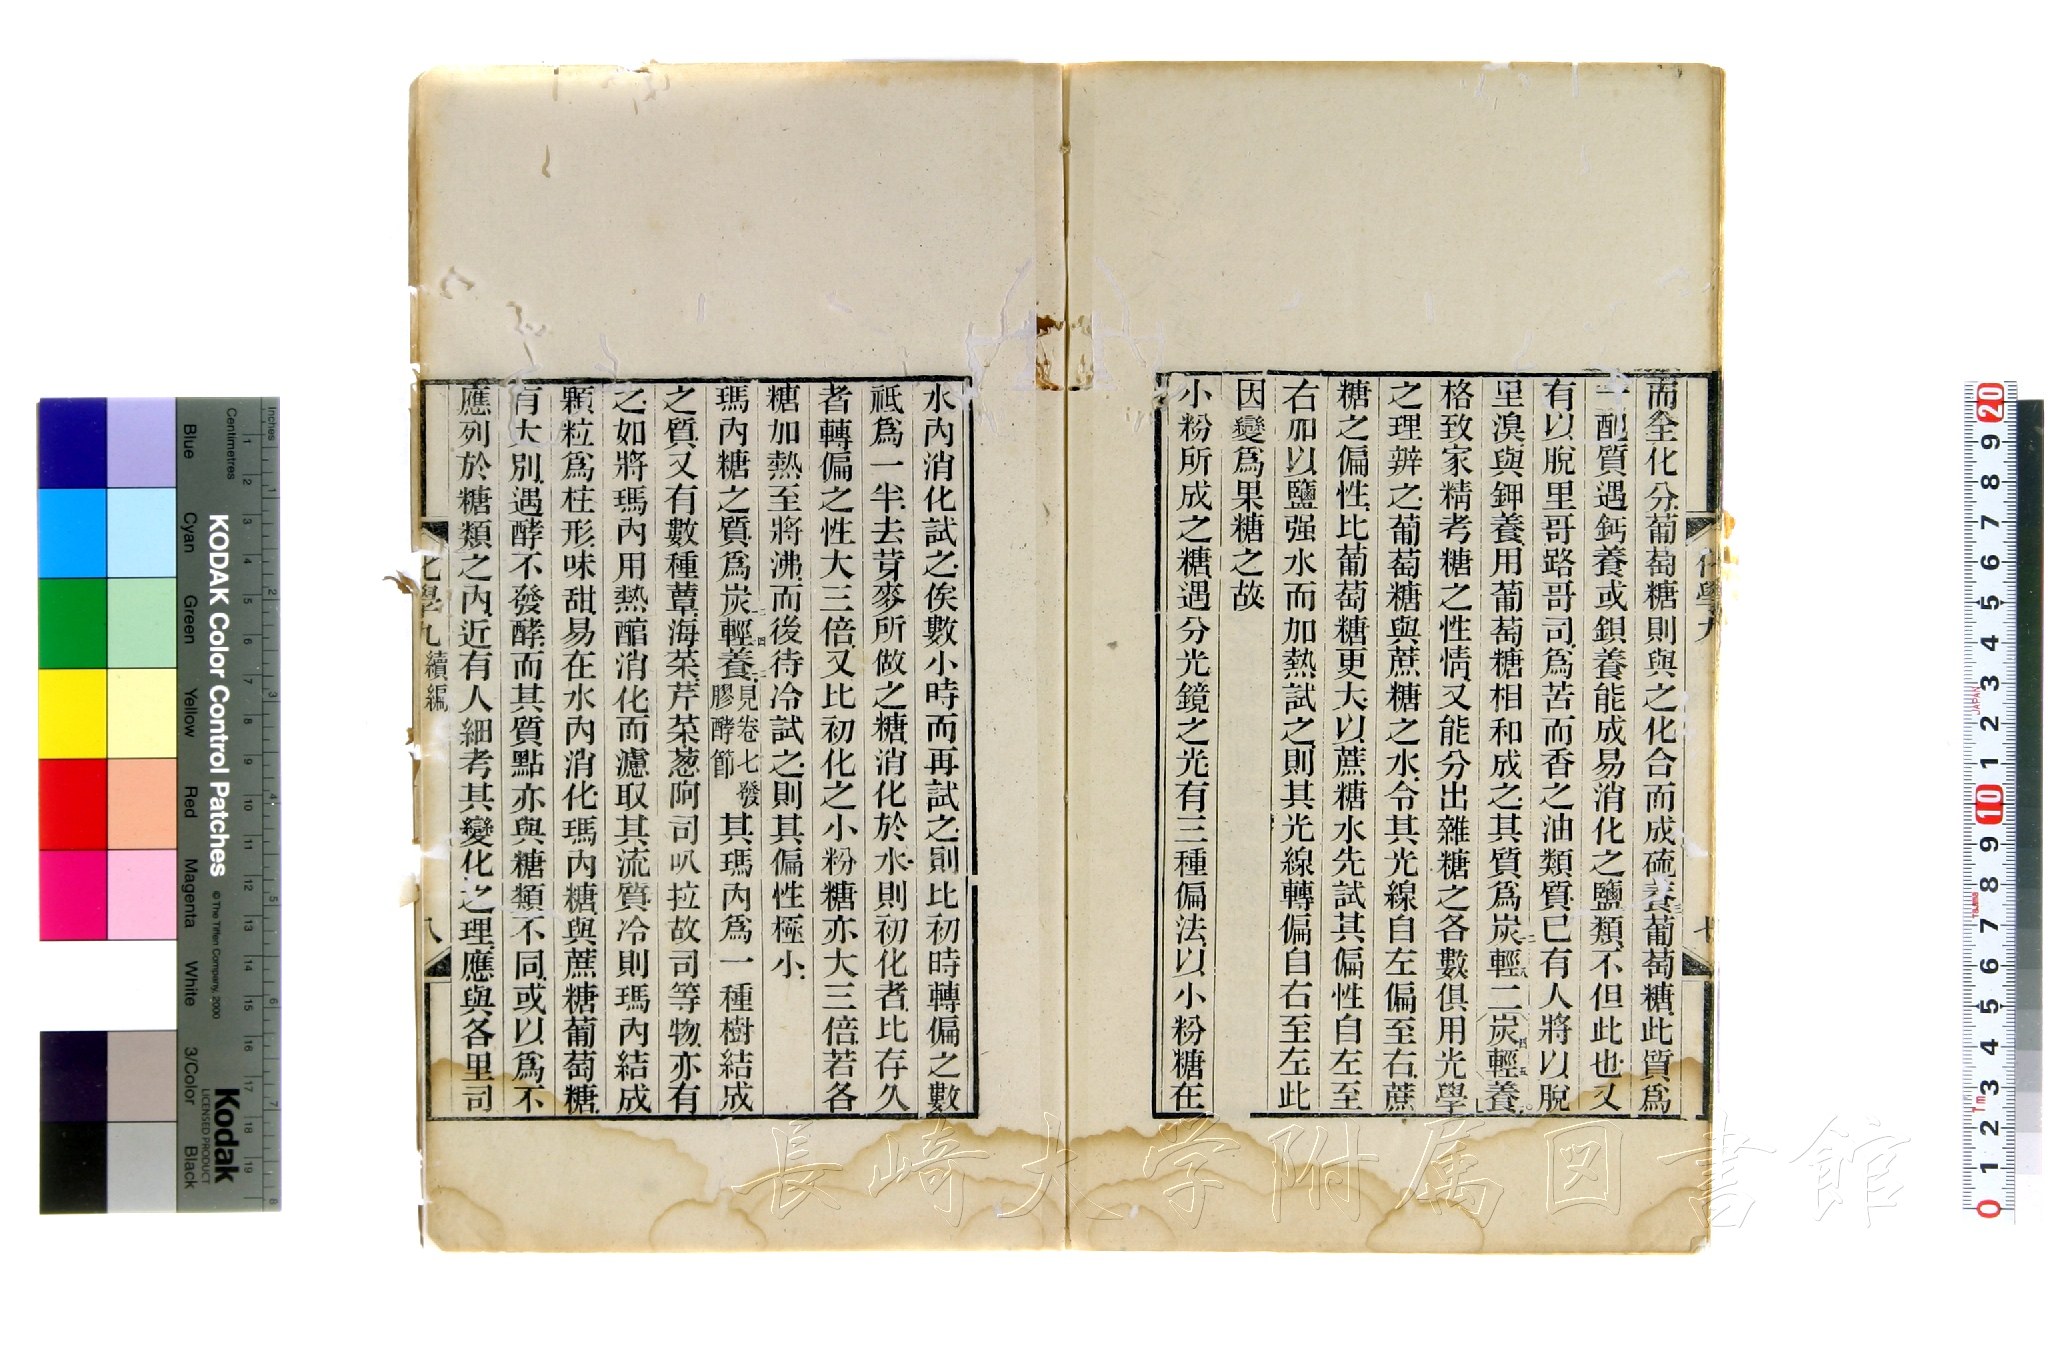 而全化分葡萄糖則與之化合而成硫養葡萄糖此質爲
一配質遇鈣養或鋇養能成易消化之鹽類不但此也又
有以脫里哥路哥司爲苦而香之油類質已有人將以脫
里溴與鉀養用葡萄糖相和成之其質爲炭輕二炭輕養
格致家精考糖之性情又能分出雜糖之各數俱用光學
之理辨之葡萄糖與蔗糖之水令其光線自左偏至右蔗
糖之偏性比葡萄糖更大以蔗糖水先試其偏性自左至
右加以鹽强水而加熱試之則其光線轉偏自右至左此
因變爲果糖之故
小粉所成之糖遇分光鏡之光有三種偏法以小粉糖在
水內消化試之俟數小時而再試之則比初時轉偏之數
祇爲一半去芽麥所做之糖消化於水則初化者比存久
者轉偏之性大三倍又比初化之小粉糖亦大三倍若各
糖加熱至將沸而後待冷試之則其偏性極小
瑪內糖之質爲炭輕養見卷七發膠酵節其瑪內爲一種樹結成
之質又有數種蕈海菜芹菜葱阿司叭拉故司等物亦有
之如將瑪內用熱醕消化而濾取其流質冷則瑪內結成
顆粒爲柱形味甜易在水內消化瑪內糖與蔗糖葡萄糖
有大別遇酵不發酵而其質點亦與糖類不同或以爲不
應列於糖類之內近有人細考其變化之理應與各里司
化學九續編
八
化學九
長崎大学附属図書館
KODAK Color Control Patches
© The Tiffen Company, 2000
Kodak
LICENSED PRODUCT
Inches
Centimetres
Blue
Cyan
Green
Yellow
Red
Magenta
White
3/Color
Black
JAPAN
Tajima